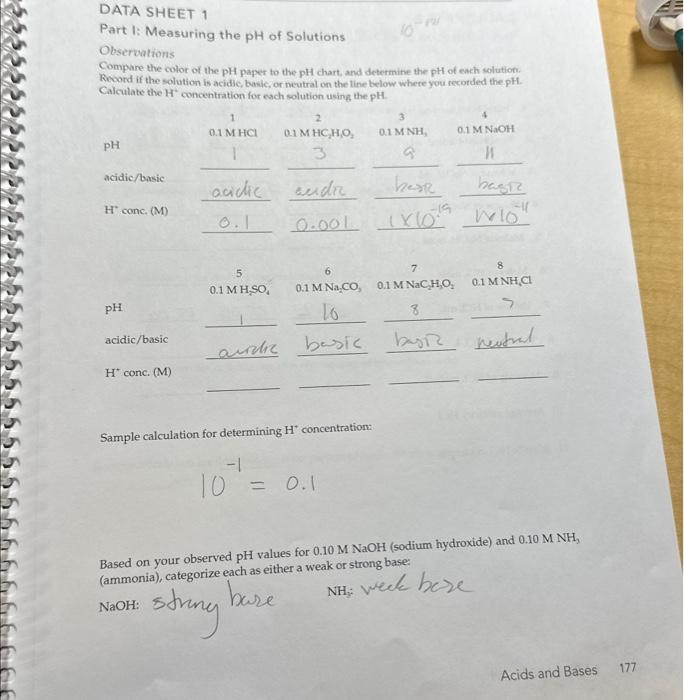 DATA SHEET 1
Part I: Measuring the pH of Solutions
Observations
Compare the color of the pH paper to the pH chart, and determine the pH of each solution.
Record if the solution is acidic, basic, or neutral on the line below where you recorded the pH.
Calculate the H⁺ concentration for each solution using the pH.
1 2 3 4
0.1 M HCl 0.1 M HC₂H₃O₂ 0.1 M NH₃ 0.1 M NaOH
pH 1 3 9 11
acidic/basic acidic acidic basic basic
H⁺ conc. (M) 0.1 0.001 1×10⁻⁹ 1×10⁻¹¹
5 6 7 8
0.1 M H₂SO₄ 0.1 M Na₂CO₃ 0.1 M NaC₂H₃O₂ 0.1 M NH₄Cl
pH 1 10 8 7
acidic/basic acidic basic basic neutral
H⁺ conc. (M)
Sample calculation for determining H⁺ concentration:
10⁻¹ = 0.1
Based on your observed pH values for 0.10 M NaOH (sodium hydroxide) and 0.10 M NH₃
(ammonia), categorize each as either a weak or strong base:
NaOH: strong base NH₃: weak base
Acids and Bases 177